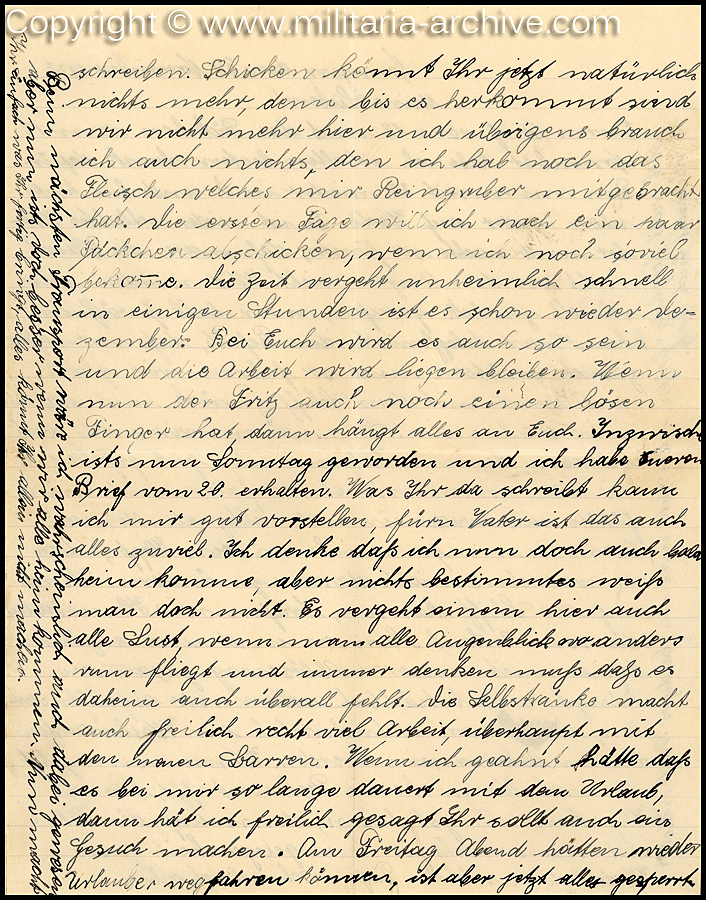 Copyright © www.militaria-archive.com
schreiben. Schicken könnt Ihr jetzt natürlich
nichts mehr, denn bis es herkommt sind
wir nicht mehr hier und übrigens brauch
ich auch nichts, den ich hab noch das
Fleisch welches mir Reingruber mitgebracht
hat. Die ersten Tage will ich noch ein paar
Päckchen abschicken, wenn ich noch soviel
bekomme. Die Zeit vergeht unheimlich schnell
in einigen Stunden ist es schon wieder De-
zember. Bei Euch wird es auch so sein
und die Arbeit wird liegen bleiben. Wenn
nun der Fritz auch noch einen bösen
Finger hat dann hängt alles an Euch. Inzwische
ists nun Sonntag geworden und ich habe Eueren
Brief vom 20. erhalten. Was Ihr da schreibt kann
ich mir gut vorstellen, fürn Vater ist das auch
alles zuviel. Ich denke daß ich nun doch auch bald
heim komme, aber nichts bestimmtes weiß
man doch nicht. Es vergeht einem hier auch
alle Lust, wenn man alle Augenblick wo anders
rum fliegt und immer denken muß daß es
daheim auch überall fehlt. Die Selbstränke macht
auch freilich recht viel Arbeit, überhaupt mit
den neuen Barren. Wenn ich geahnt hätte daß
es bei mir so lange dauert mit dem Urlaub,
dann hät ich freilich gesagt Ihr sollt auch ein
Gesuch machen. Am Freitag Abend hätten wieder
Urlauber wegfahren können, ist aber jetzt alles gesperrt
Beim nächsten Transport wär ich wahrscheinlich auch dabei gewesen,
aber nun ists doch besser wenn wir alle heim kommen. Nun macht
Ihr einfach was Ihr fertig bringt, alles könnt Ihr allein nicht machen.